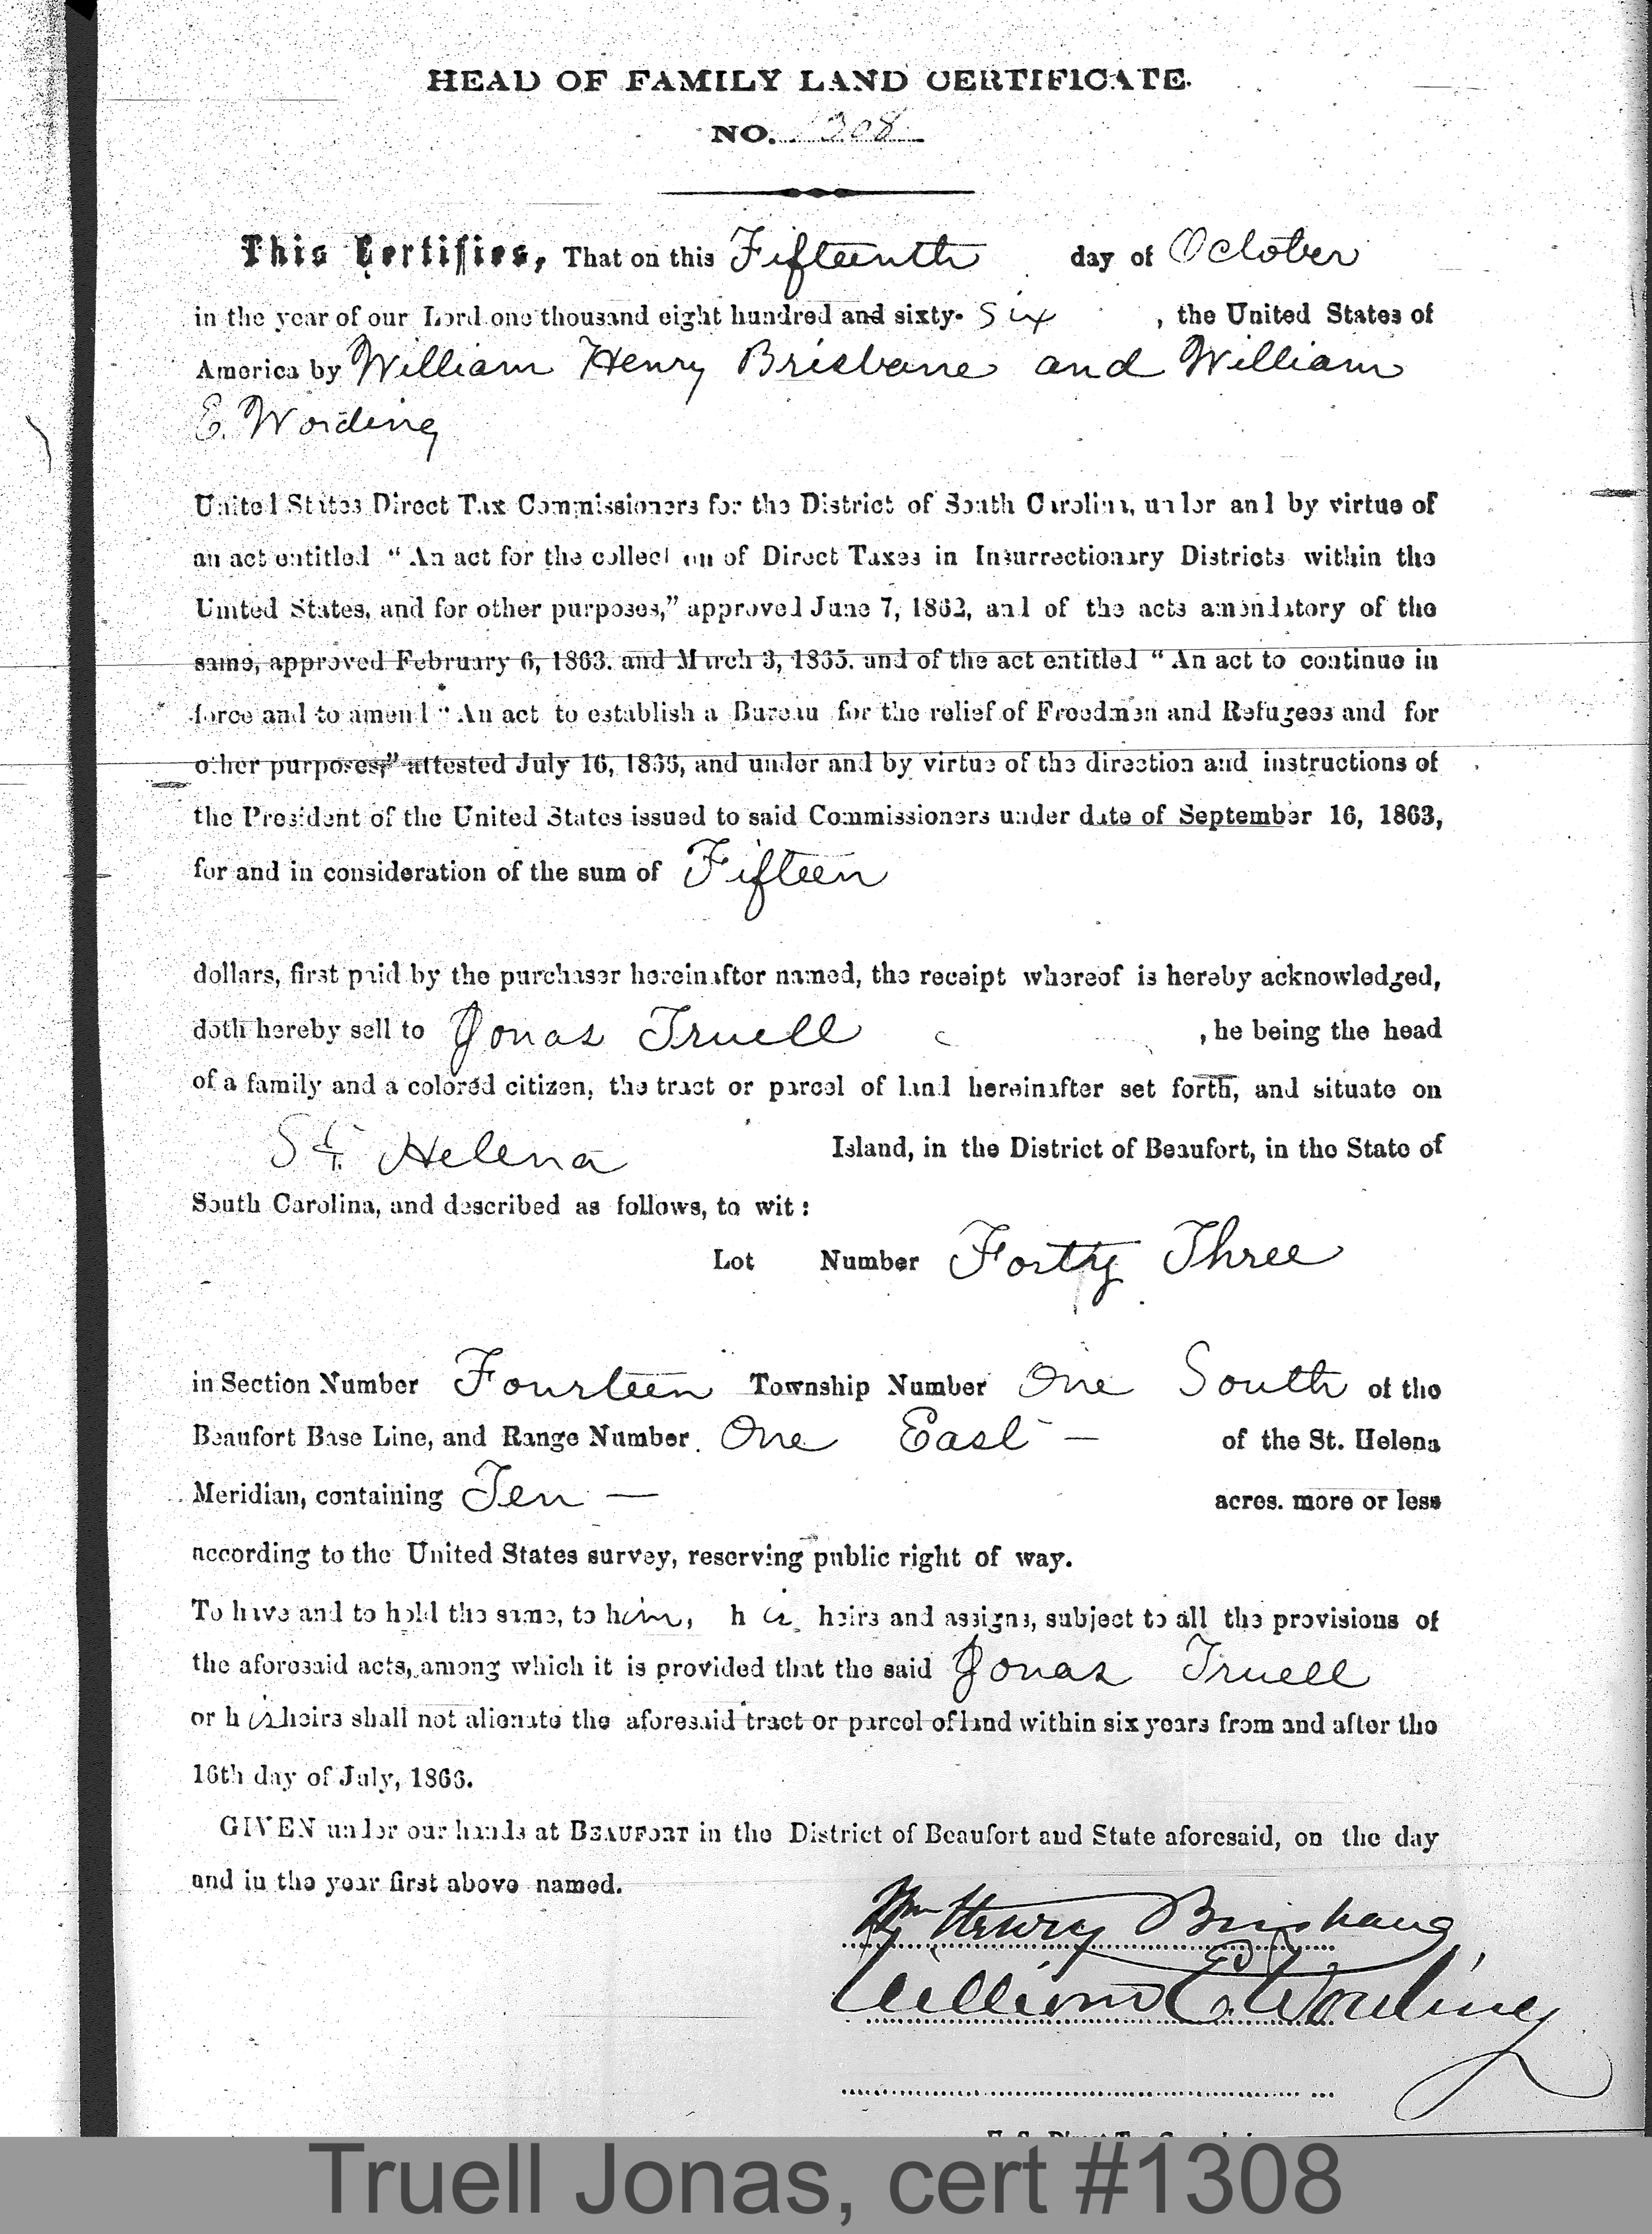 HEAD OF FAMILY LAND CERTIFICATE.
NO. 1308
This Certifies, That on this Fifteenth day of October
in the year of our Lord one thousand eight hundred and sixty-six, the United States of
America by William Henry Brisbane and William
E. Wording
United States Direct Tax Commissioners for the District of South Carolina, under and by virtue of
an act entitled "An act for the collection of Direct Taxes in Insurrectionary Districts within the
United States, and for other purposes," approved June 7, 1862, and of the acts amendatory of the
same, approved February 6, 1863. and March 3, 1865. and of the act entitled "An act to continue in
force and to amend "An act to establish a Bureau for the relief of Freedmen and Refugees and for
other purposes," attested July 16, 1866, and under and by virtue of the direction and instructions of
the President of the United States issued to said Commissioners under date of September 16, 1863,
for and in consideration of the sum of Fifteen
dollars, first paid by the purchaser hereinafter named, the receipt whereof is hereby acknowledged,
doth hereby sell to Jonas Truell, he being the head
of a family and a colored citizen, the tract or parcel of land hereinafter set forth, and situate on
St. Helena Island, in the District of Beaufort, in the State of
South Carolina, and described as follows, to wit:
Lot Number Forty Three
in Section Number Fourteen Township Number One South of the
Beaufort Base Line, and Range Number One East — of the St. Helena
Meridian, containing Ten — acres. more or less
according to the United States survey, reserving public right of way.
To have and to hold the same, to him, his heirs and assigns, subject to all the provisions of
the aforesaid acts, among which it is provided that the said Jonas Truell
or his heirs shall not alienate the aforesaid tract or parcel of land within six years from and after the
16th day of July, 1866.
GIVEN under our hands at BEAUFORT in the District of Beaufort and State aforesaid, on the day
and in the year first above named.
Wm Henry Brisbane
William E. Wording
Truell Jonas, cert #1308